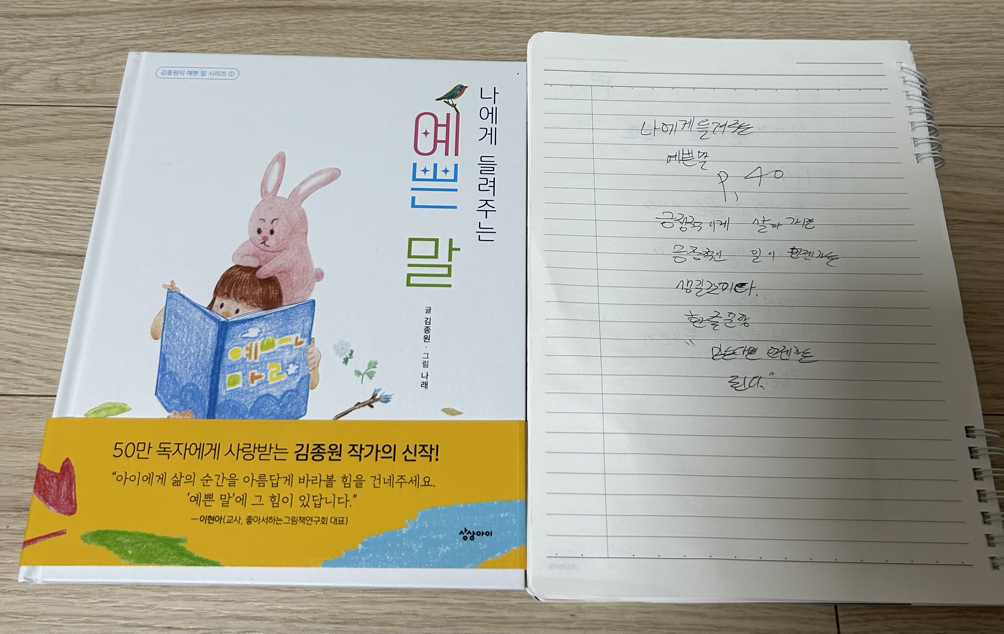 김종원의 예쁜 말 시리즈 ①
나에게 들려주는
예쁜
말
글 김종원 · 그림 나래
예쁘나
마르
50만 독자에게 사랑받는 김종원 작가의 신작!
“아이에게 삶의 순간을 아름답게 바라볼 힘을 건네주세요.
‘예쁜 말’에 그 힘이 있답니다.”
—이현아(교사, 좋아서하는그림책연구회 대표)
상상아이
나에게 들려주는
예쁜말
P, 40
긍정적이게 살아가면
긍정적인 일이 언젠가는
생길것이다.
한줄문장
“ 믿는다면 언젠가는
된다.”